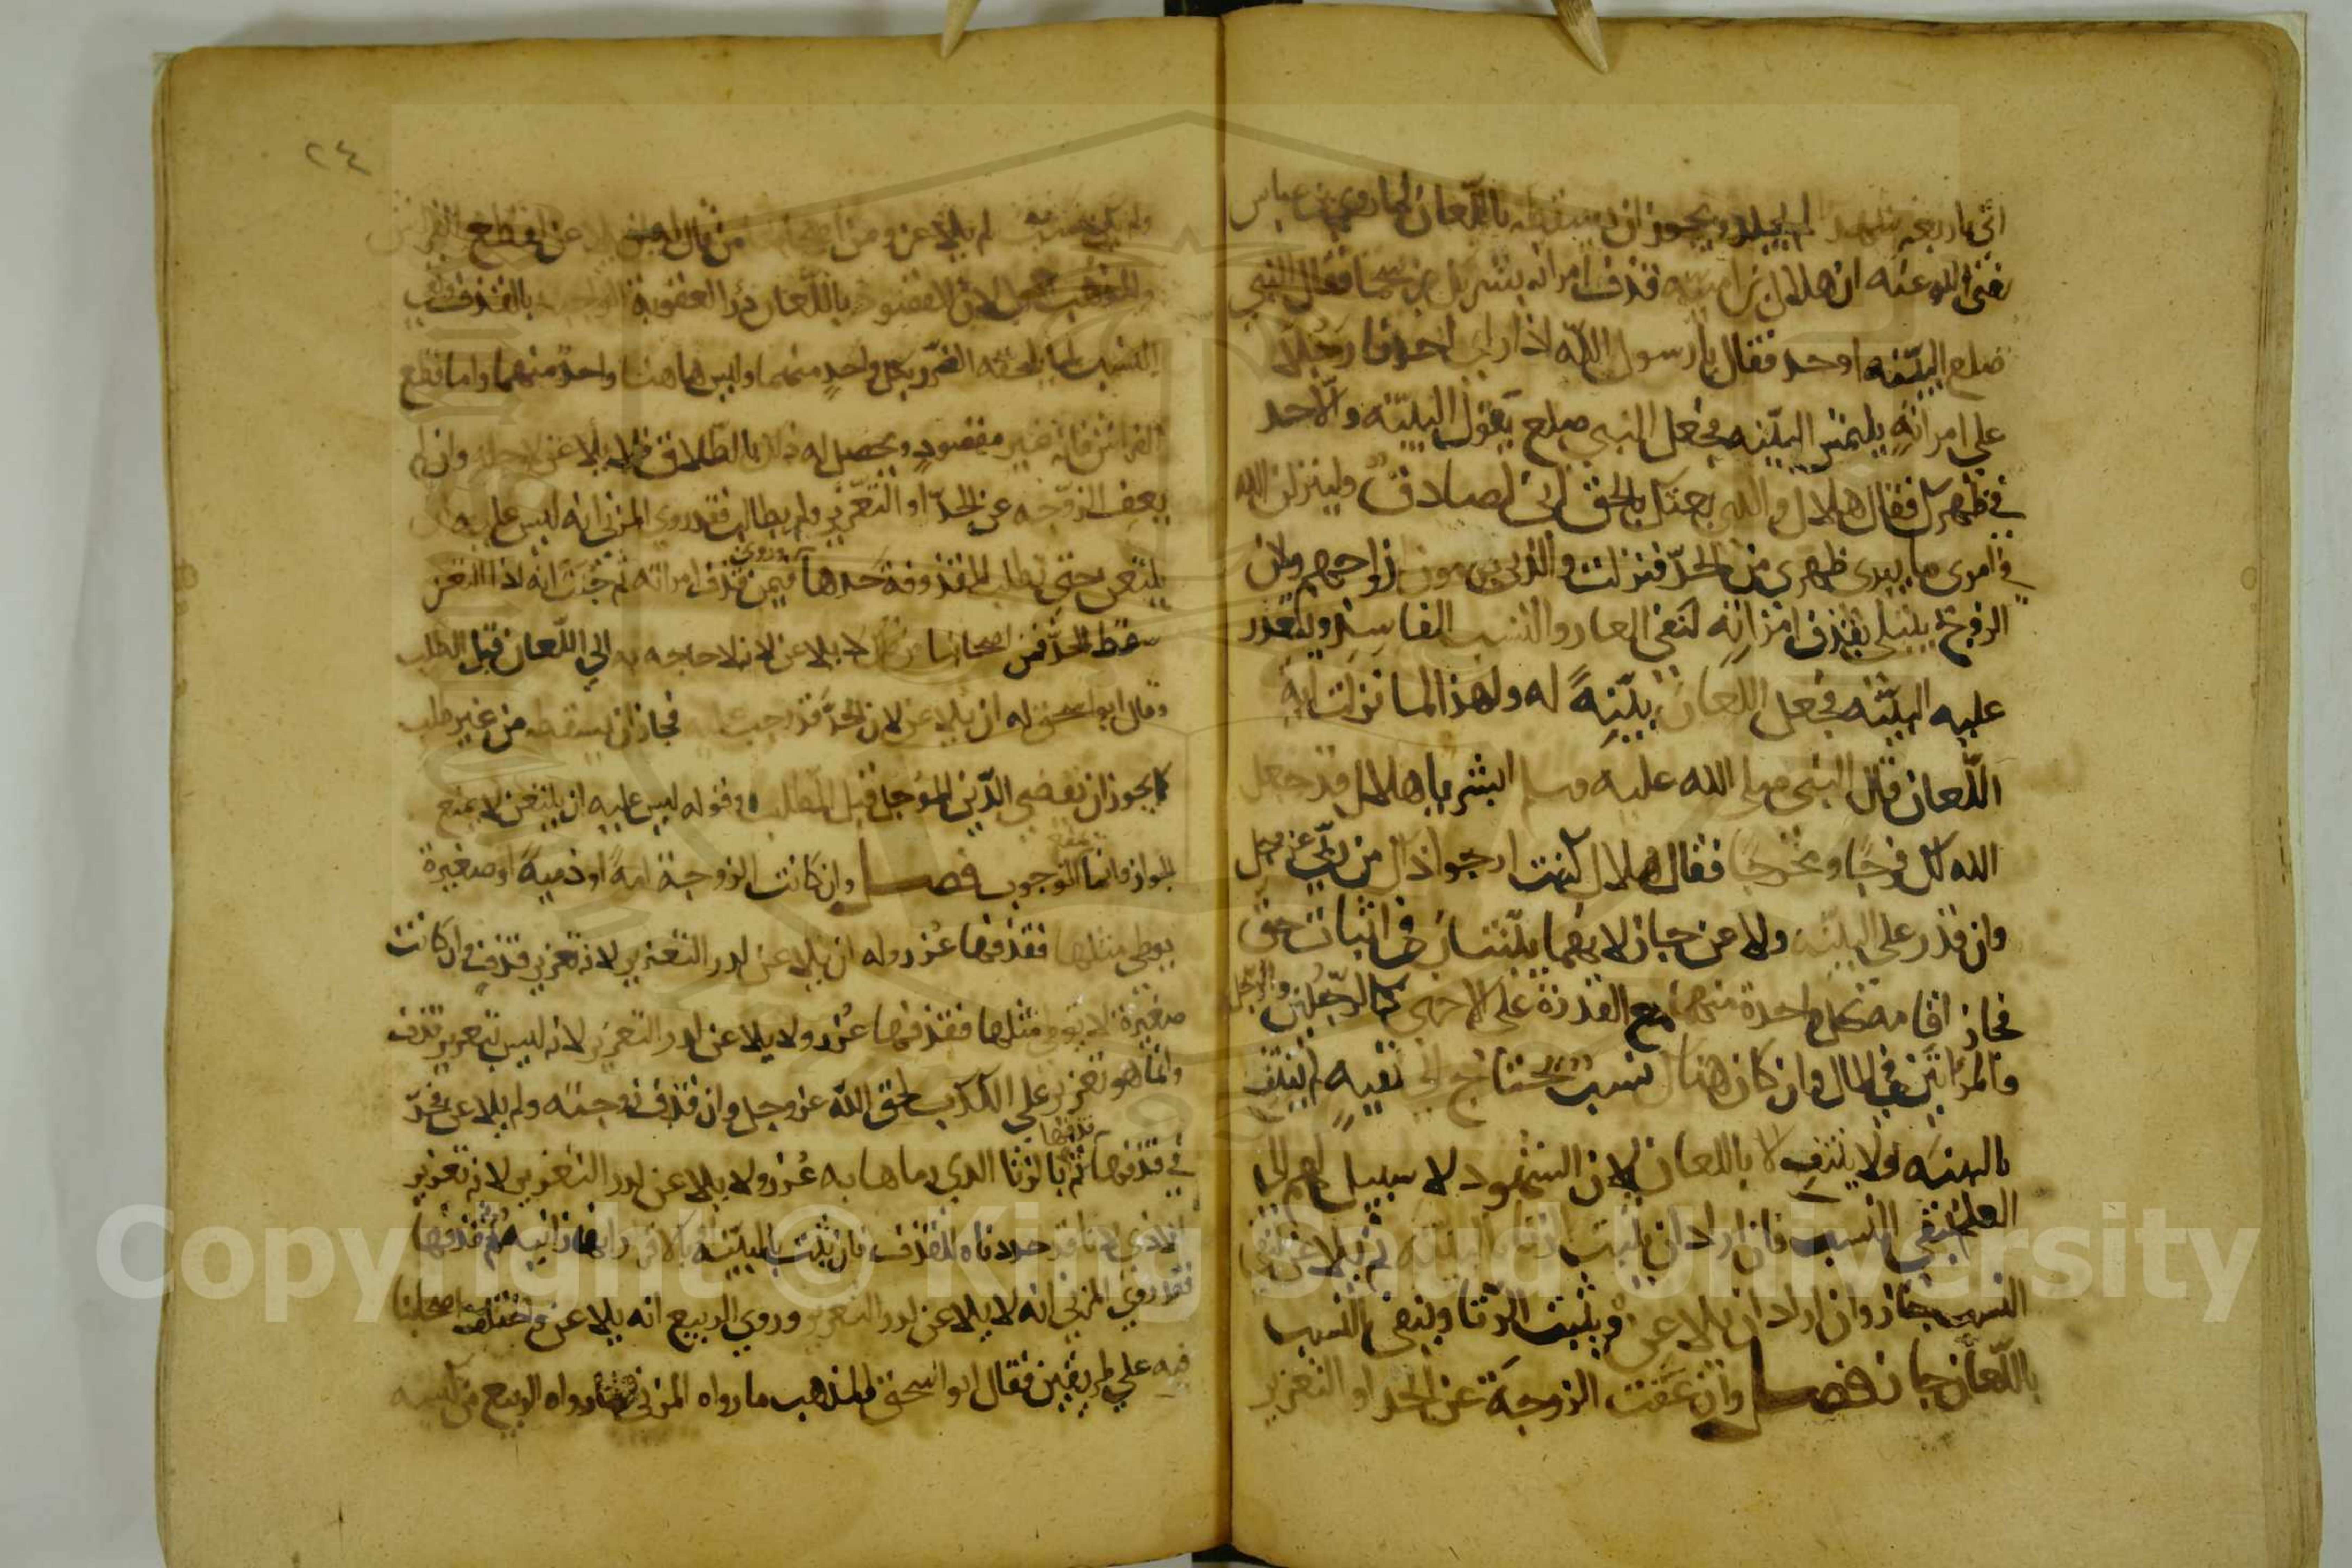 الى اربعة الجلد ويجوز ان يسقطه باللعان لما روى ابن عباس
رضى الله عنه ان هلال بن امية قذف امراته بشريك بن سحما فقال النبي
صلعم البينه او حد فقال يا رسول الله اذا راى احدنا رجلا
على امراته يلتمس البينه فجعل النبي صلعم يقول البينه والا حد
في ظهرك فقال هلال والذي بعثك بالحق اني لصادق ولينزلن الله
في امري ما يبري ظهري من الحد فنزلت والذين يرمون ازواجهم ولان
الزوج يبتلى بقذف امراته لنفي العار والنسب الفاسد ويتعذر
عليه البينه فجعل اللعان بينة له ولهذا لما نزلت اية
اللعان قال النبي صلى الله عليه وسلم ابشر يا هلال قد جعل
الله لك فرجا ومخرجا فقال هلال كنت ارجوا ذلك من ربي عز وجل
وان قدر على البينه ولاعن جاز لانهما بينتان في اثبات حق
فجاز اقامة كل واحدة منهما مع القدرة على الاخرى كالرجلين والرجل
والمراتين في المال وان كان هناك نسب يحتاج الى نفيه لم ينتف
بالبينه ولا ينتف الا باللعان لان الشهود لا سبيل لهم الى
العلم بنفي النسب فان اراد ان يثبت الزنا بالبينه ثم يلاعن لنفي
النسب جاز وان اراد ان يلاعن ويثبت الزنا وينفي النسب
باللعان جاز فصل وان عفت الزوجة عن الحد او التعزير
٢٤
ولم يكن نسب لم يلاعن ومن اصحابنا من قال له ان يلاعن لقطع الفراش
والمذهب الاول لان المقصود باللعان درا العقوبة الواجبة بالقذف ونفي
النسب لما يلحقه من الضرر بكل واحد منهما وليس هاهنا واحد منهما واما قطع
الفراش فانه غير مقصود ويحصل له ذلك بالطلاق فلا يلاعن لاجله وان لم
يعف الزوجه عن الحد او التعزير ولم يطالب فقد روى المزني انه ليس عليه ان
يلتعن حتى تطلب المقذوفة حدها وروى فيمن قذف امراته ثم جنت انه اذا التعن
سقط الحد فمن اصحابنا من قال لا يلاعن لانه لا حاجه به الى اللعان قبل الطلب
وقال ابو اسحق له ان يلاعن لان الحد قد وجب عليه فجاز ان يسقطه من غير طلب
كما يجوز ان يقضي الدين المؤجل قبل الطلب وقوله ليس عليه ان يلتعن لا يمنع
الجواز وانما يمنع الوجوب فصل وان كانت الزوجة امة او ذمية او صغيرة
يوطى مثلها فقذفها عزر وله ان يلاعن لدرء التعزير لانه تعزير قذف وان كانت
صغيرة لا يوطى مثلها فقذفها عزر ولا يلاعن لدرء التعزير لانه ليس بتعزير قذف
وانما هو تعزير على الكذب لحق الله عز وجل وان قذف زوجته ولم يلاعن فحد
في قذفها ثم قذفها بالزنا الذي رماها به عزر ولا يلاعن لدرء التعزير لانه تعزير
لاذى لانا قد حددناه للقذف فان ثبت بالبينة او بالاقرار انها زانية ثم قذفها
فقد روى المزني انه لا يلاعن لدرء التعزير وروى الربيع انه يلاعن واختلف اصحابنا
فيه على طريقين فقال ابو اسحق المذهب ما رواه المزني وما رواه الربيع من كيسه
Copyright © King Saud University